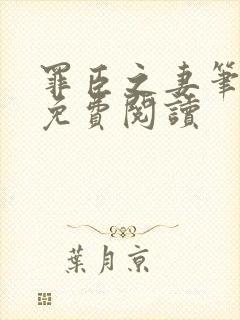 罪臣之妻筆
免費閱讀
葉月京